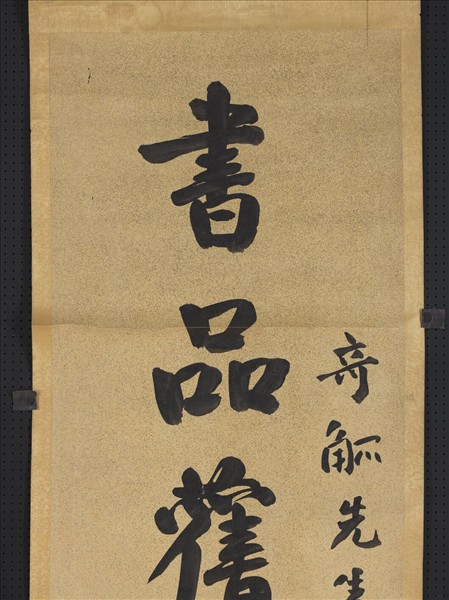 奇觚先生
書品